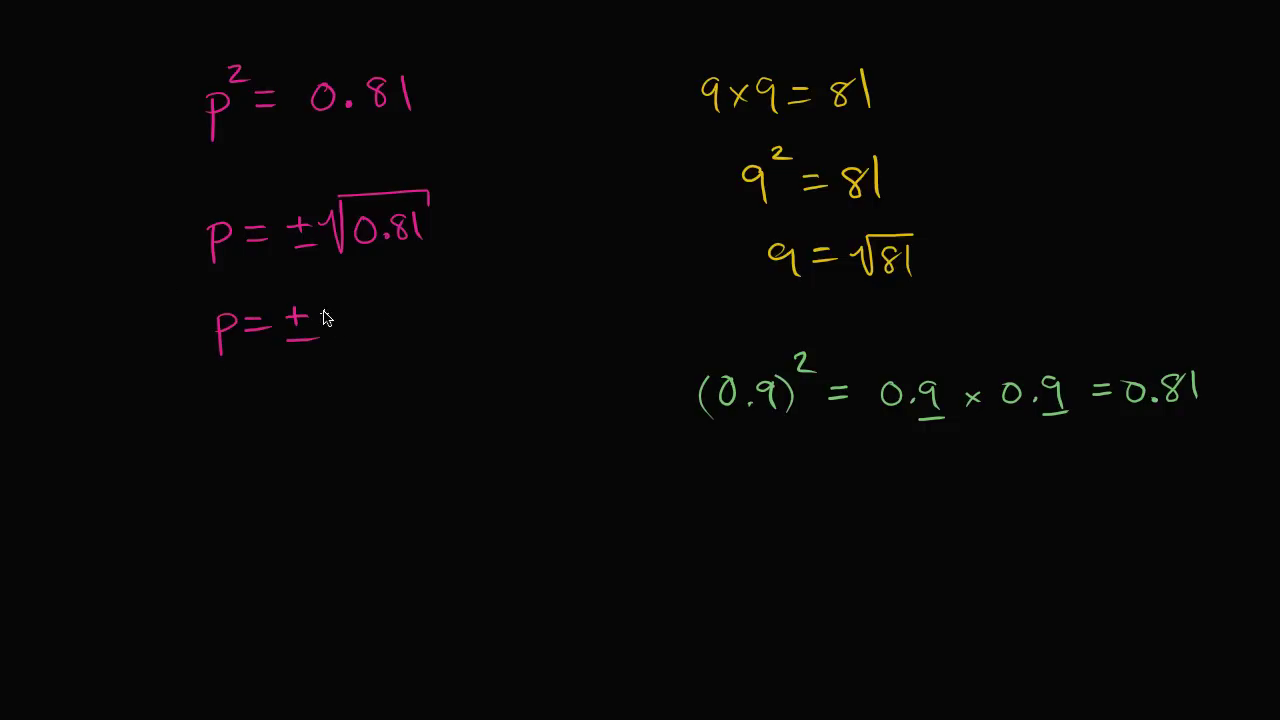 p² = 0.81
p = ±√0.81
p = ±
9×9 = 81
9² = 81
9 = √81
(0.9)² = 0.9 × 0.9 = 0.81